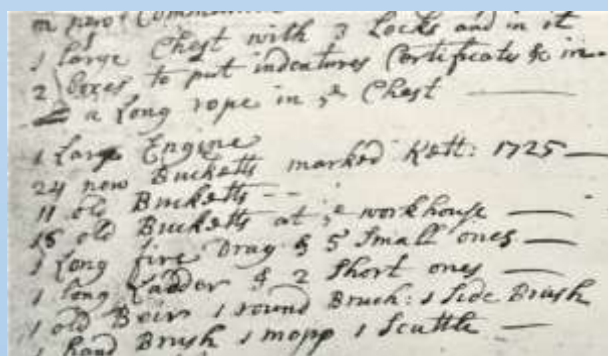 1 Large Chest with 3 Locks and in it
2 boxes to put indentures Certificats & in
a Long rope in yᵉ Chest
1 Large Engine
24 new Bucketts marked Kett: 1725
11 old Bucketts
18 old Bucketts at yᵉ workhouse
1 Long fire Drag & 5 Small ones
1 long Ladder & 2 Short ones
1 old Beir 1 round Brush: 1 Side Brush
1 hand Brush 1 mopp 1 Scuttle